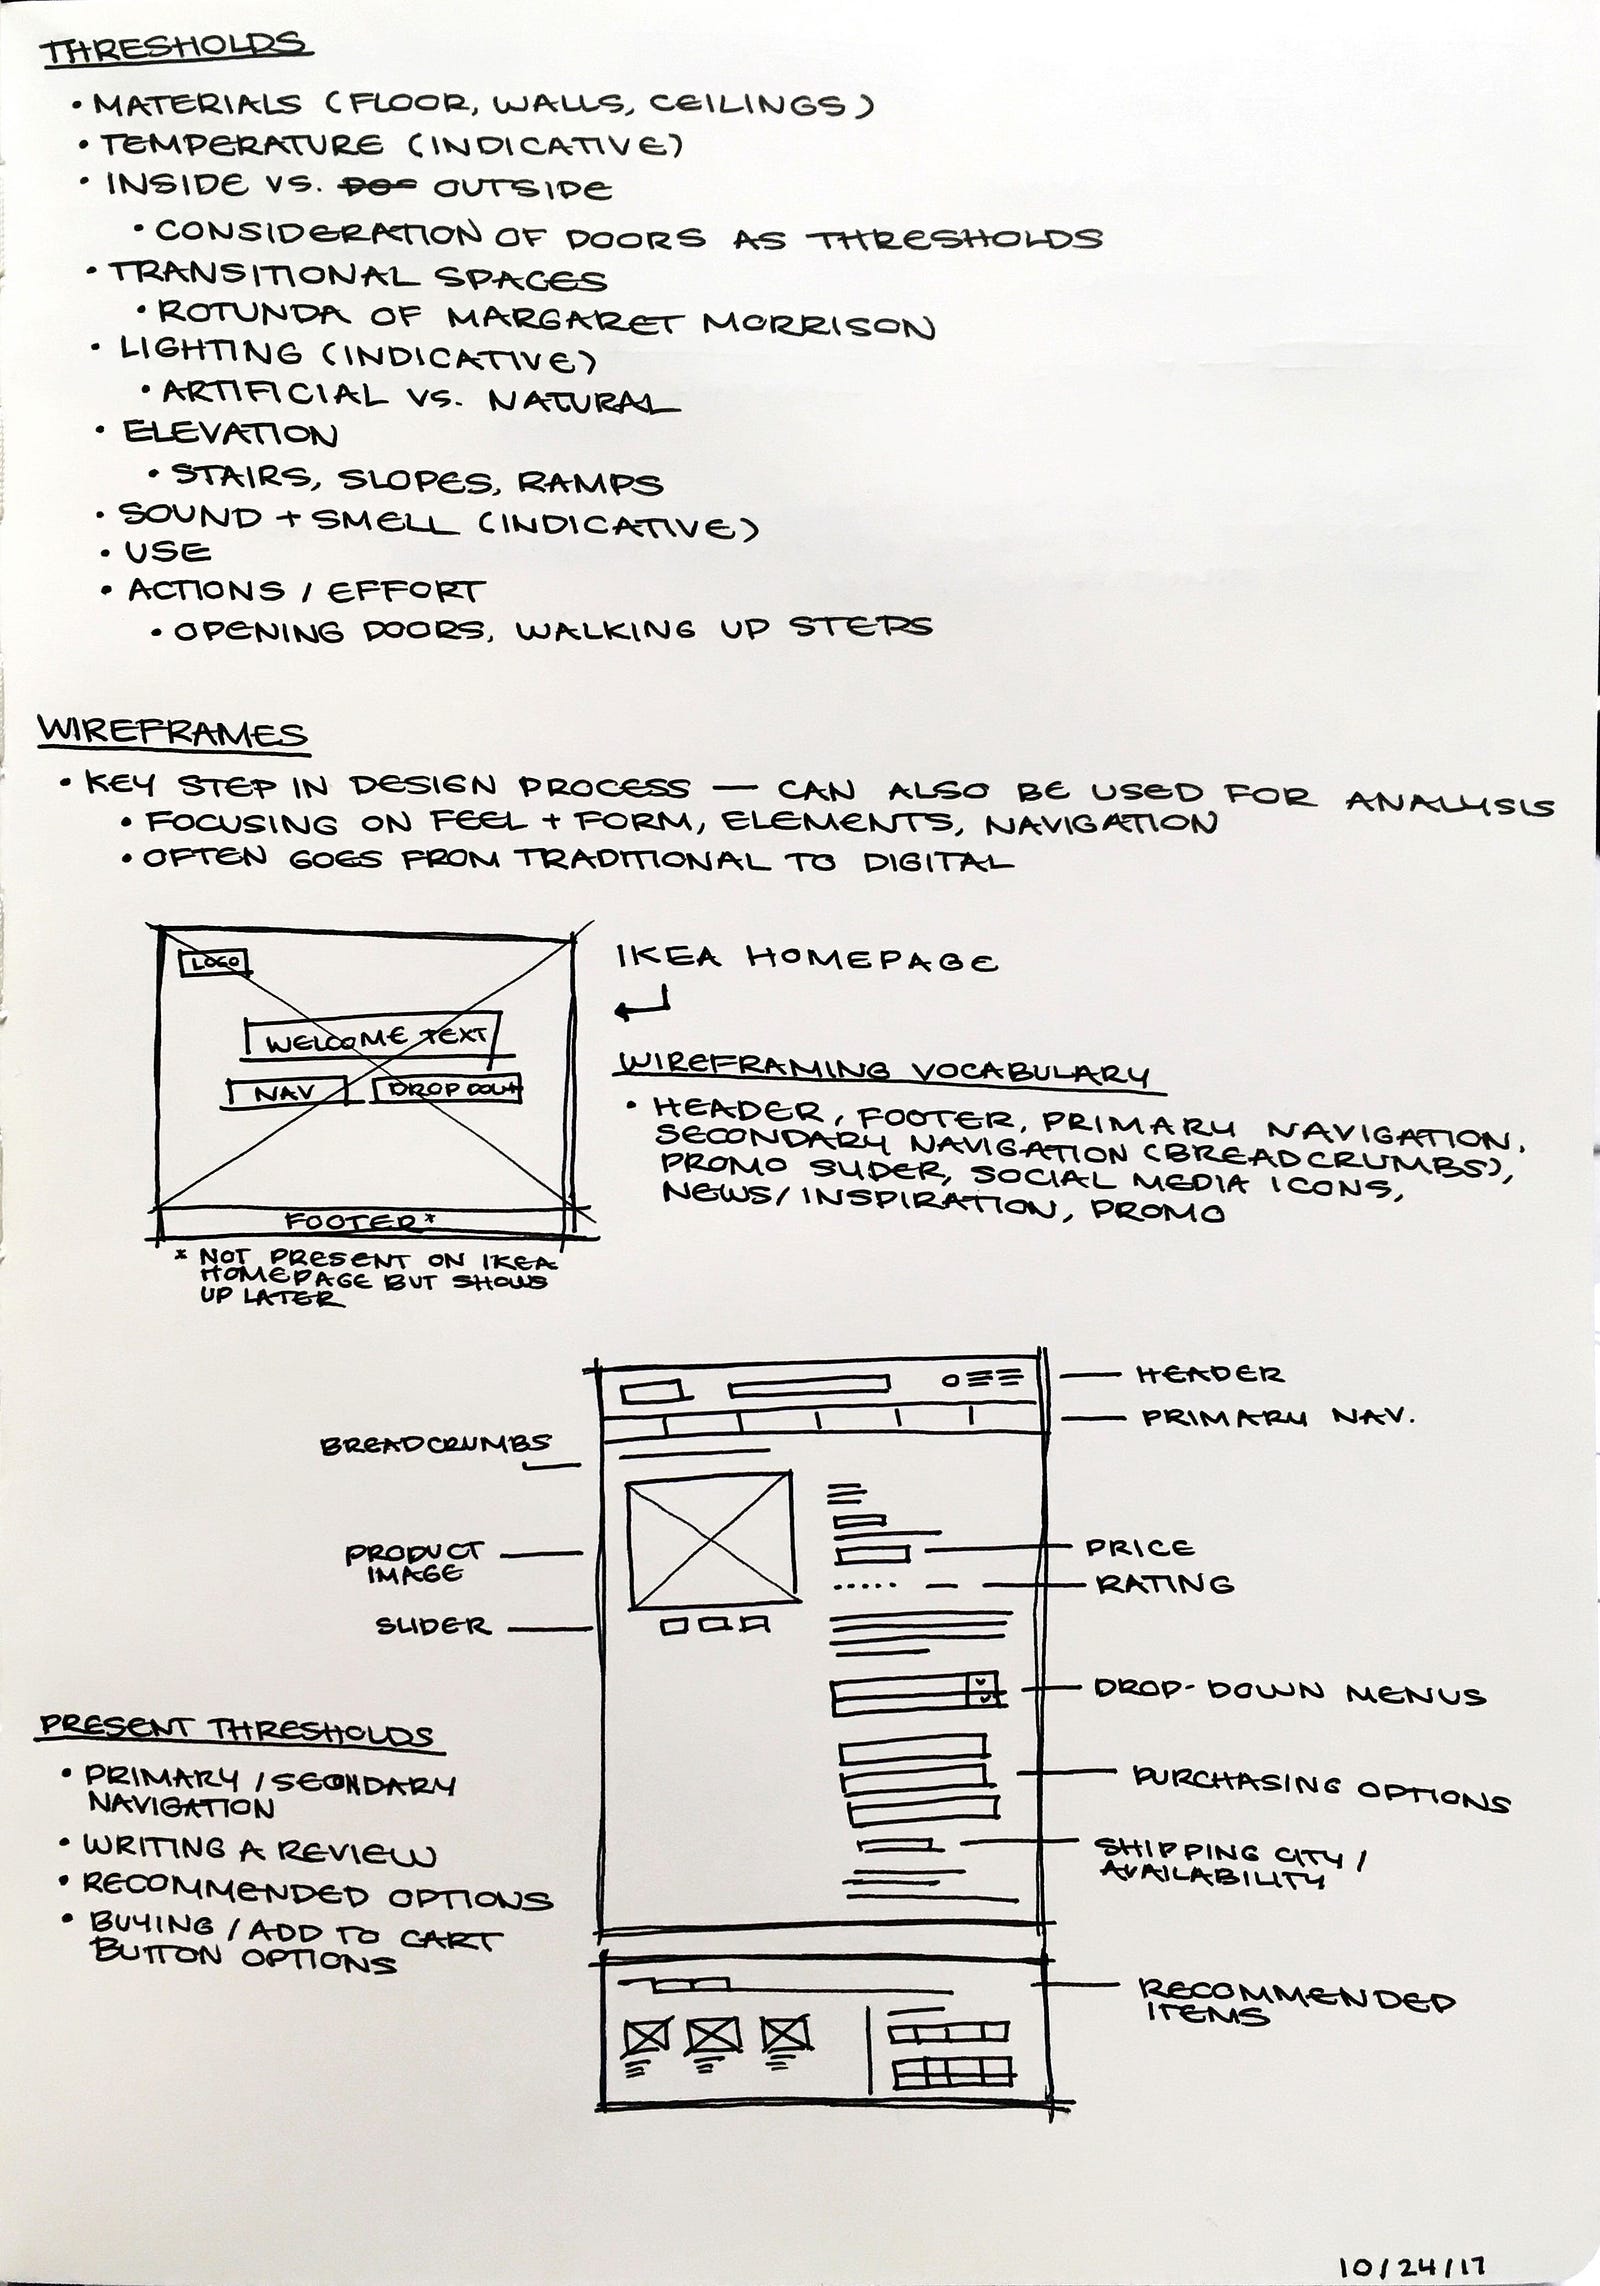 THRESHOLDS
• MATERIALS (FLOOR, WALLS, CEILINGS)
• TEMPERATURE (INDICATIVE)
• INSIDE VS. OUTSIDE
• CONSIDERATION OF DOORS AS THRESHOLDS
• TRANSITIONAL SPACES
• ROTUNDA OF MARGARET MORRISON
• LIGHTING (INDICATIVE)
• ARTIFICIAL VS. NATURAL
• ELEVATION
• STAIRS, SLOPES, RAMPS
• SOUND + SMELL (INDICATIVE)
• USE
• ACTIONS / EFFORT
• OPENING DOORS, WALKING UP STEPS
WIREFRAMES
• KEY STEP IN DESIGN PROCESS — CAN ALSO BE USED FOR ANALYSIS
• FOCUSING ON FEEL + FORM, ELEMENTS, NAVIGATION
• OFTEN GOES FROM TRADITIONAL TO DIGITAL
LOGO
WELCOME TEXT
NAV
DROP DOWN
FOOTER*
* NOT PRESENT ON IKEA
HOMEPAGE BUT SHOWS
UP LATER
IKEA HOMEPAGE
WIREFRAMING VOCABULARY
• HEADER, FOOTER, PRIMARY NAVIGATION,
SECONDARY NAVIGATION (BREADCRUMBS),
PROMO SLIDER, SOCIAL MEDIA ICONS,
NEWS/INSPIRATION, PROMO
HEADER
PRIMARY NAV.
BREADCRUMBS
PRODUCT
IMAGE
SLIDER
PRICE
RATING
DROP-DOWN MENUS
PURCHASING OPTIONS
SHIPPING CITY/
AVAILABILITY
RECOMMENDED
ITEMS
PRESENT THRESHOLDS
• PRIMARY/SECONDARY
NAVIGATION
• WRITING A REVIEW
• RECOMMENDED OPTIONS
• BUYING/ADD TO CART
BUTTON OPTIONS
10/24/17